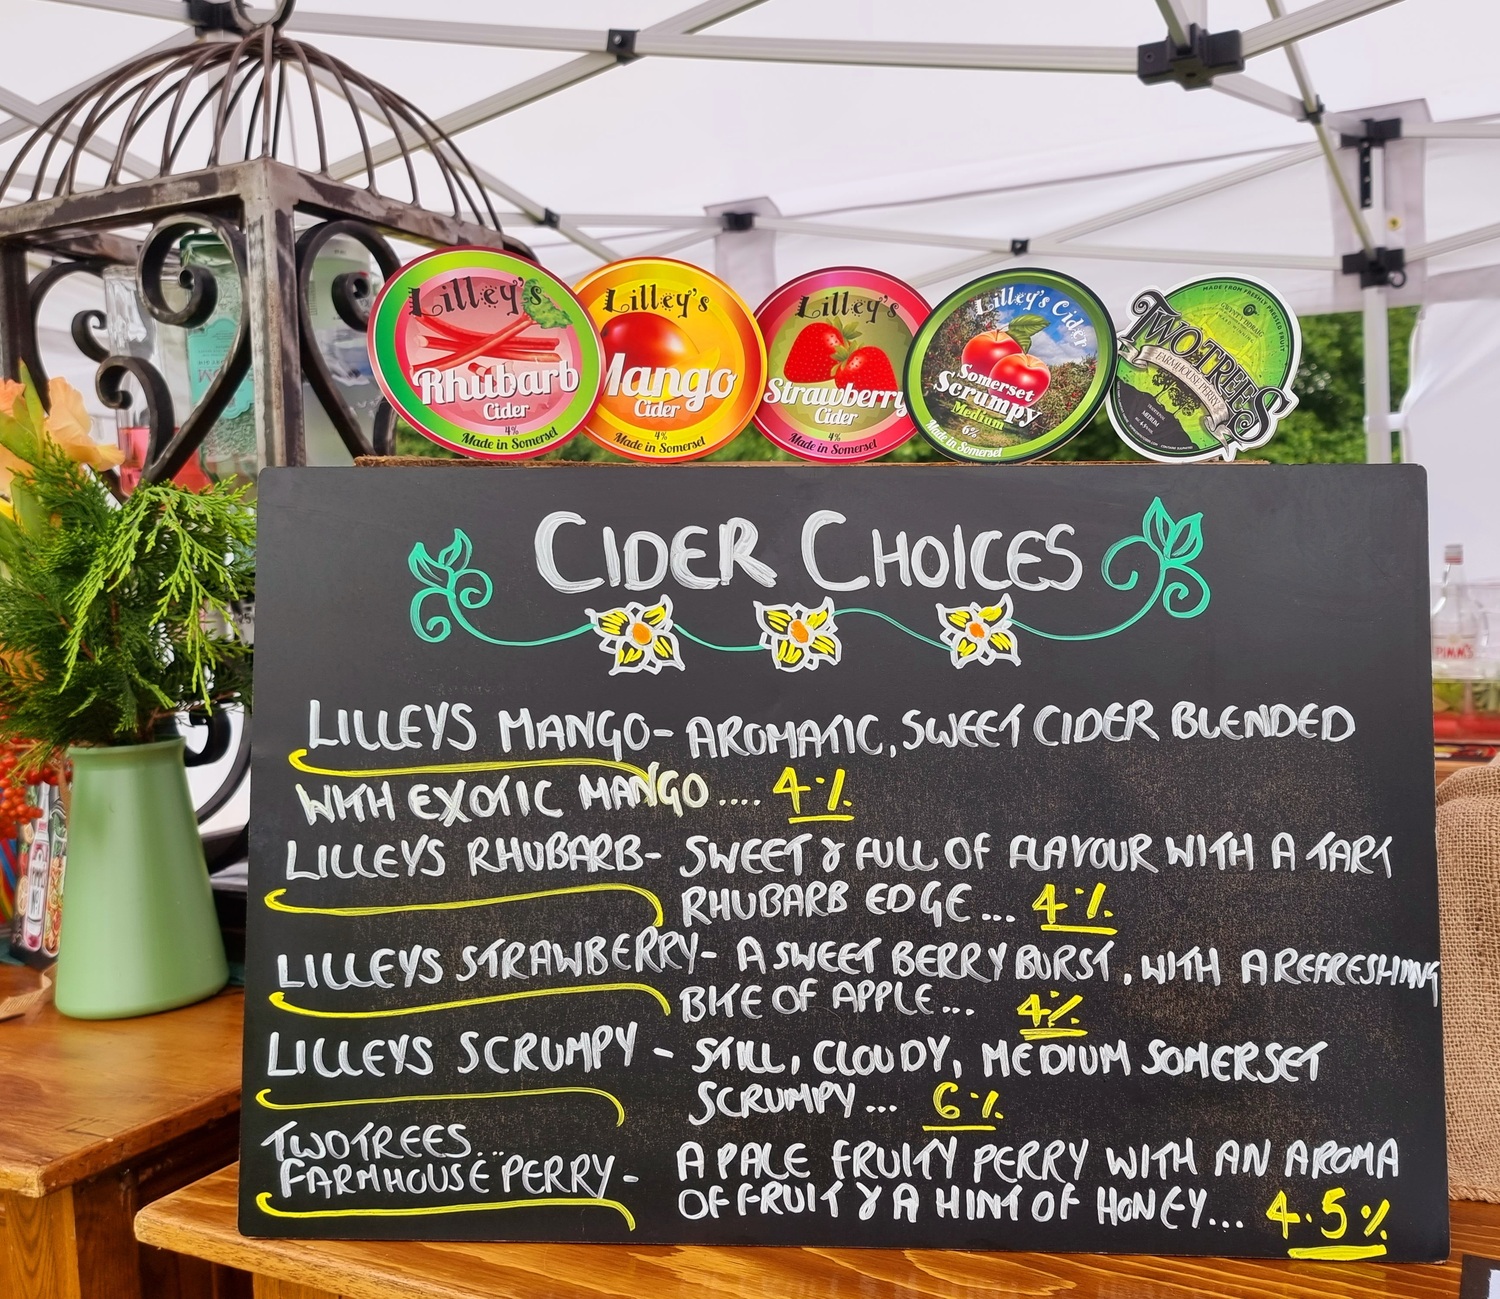 Lilley's
Rhubarb
Cider
4%
Made in Somerset
Lilley's
Mango
Cider
4%
Made in Somerset
Lilley's
Strawberry
Cider
4%
Made in Somerset
Lilley's Cider
Somerset
Scrumpy
Medium
6%
Made in Somerset
MADE FROM FRESHLY PRESSED FRUIT
TWO TREES
FARMHOUSE PERRY
MEDIUM
CIDER CHOICES
LILLEYS MANGO- AROMATIC, SWEET CIDER BLENDED
WITH EXOTIC MANGO .... 4%
LILLEYS RHUBARB- SWEET & FULL OF FLAVOUR WITH A TART
RHUBARB EDGE ... 4%
LILLEYS STRAWBERRY- A SWEET BERRY BURST, WITH A REFRESHING
BITE OF APPLE... 4%
LILLEYS SCRUMPY - STILL, CLOUDY, MEDIUM SOMERSET
SCRUMPY... 6%
TWOTREES...
FARMHOUSE PERRY- A PALE FRUITY PERRY WITH AN AROMA
OF FRUIT & A HINT OF HONEY... 4.5%
PIMM'S